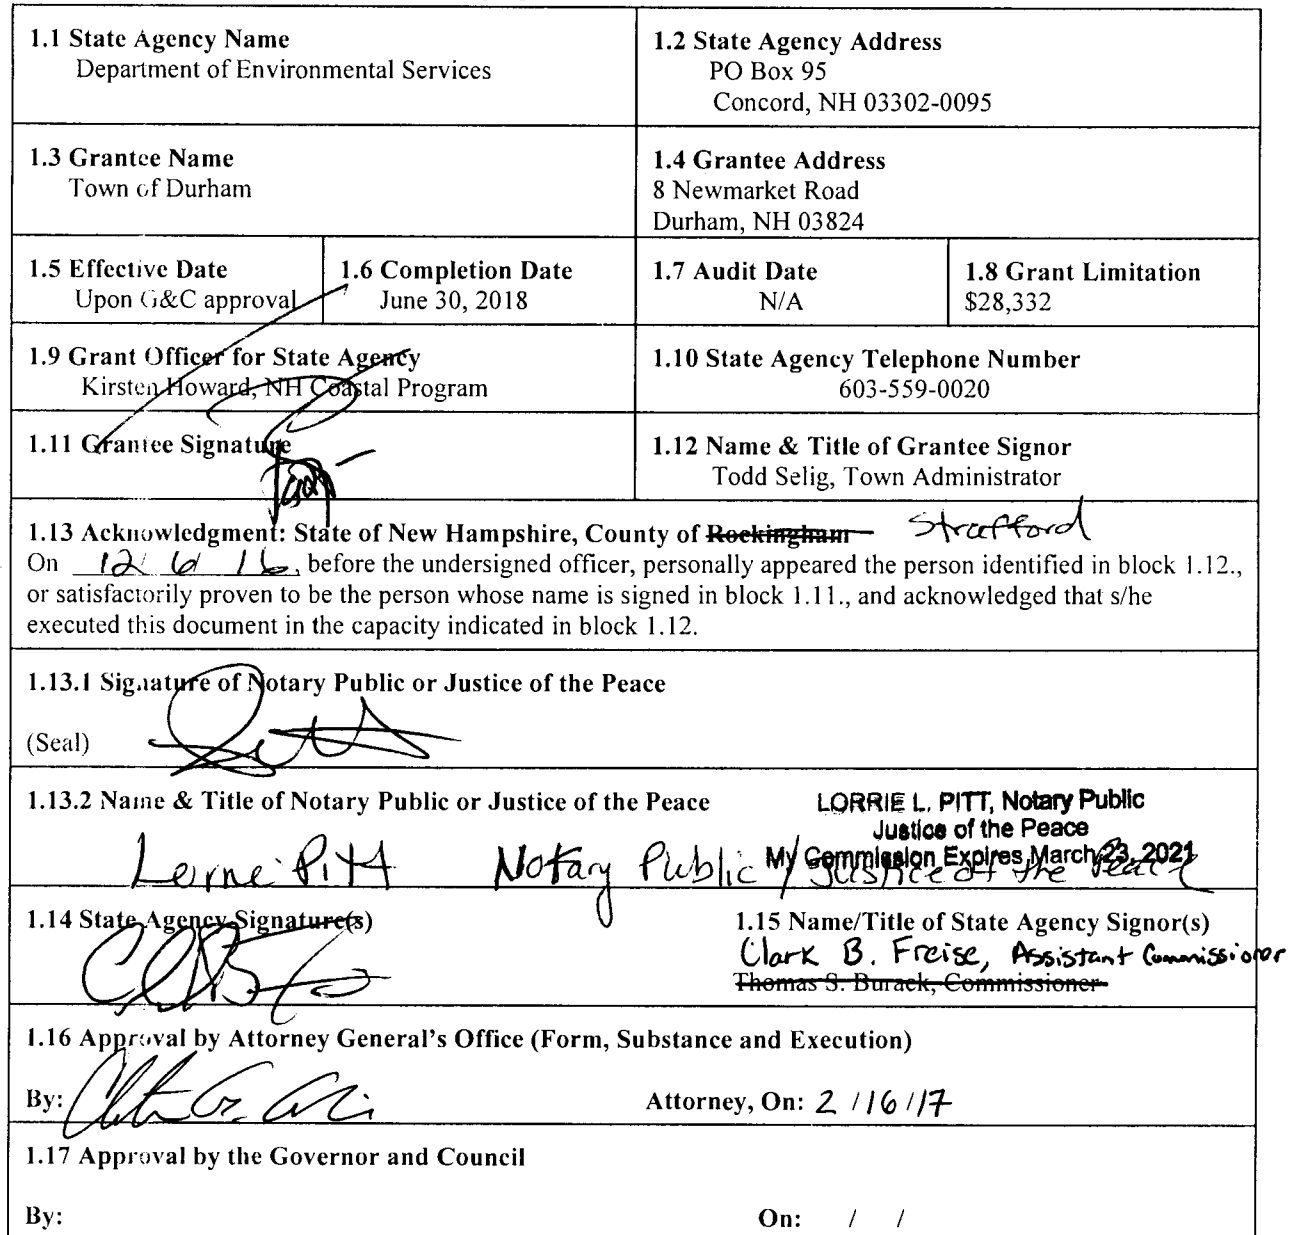 1.1 State Agency Name
Department of Environmental Services
1.2 State Agency Address
PO Box 95
Concord, NH 03302-0095
1.3 Grantee Name
Town of Durham
1.4 Grantee Address
8 Newmarket Road
Durham, NH 03824
1.5 Effective Date
Upon G&C approval
1.6 Completion Date
June 30, 2018
1.7 Audit Date
N/A
1.8 Grant Limitation
$28,332
1.9 Grant Officer for State Agency
Kirsten Howard, NH Coastal Program
1.10 State Agency Telephone Number
603-559-0020
1.11 Grantee Signature
1.12 Name & Title of Grantee Signor
Todd Selig, Town Administrator
1.13 Acknowledgment: State of New Hampshire, County of Rockingham Strafford
On 12/6/16, before the undersigned officer, personally appeared the person identified in block 1.12.,
or satisfactorily proven to be the person whose name is signed in block 1.11., and acknowledged that s/he
executed this document in the capacity indicated in block 1.12.
1.13.1 Signature of Notary Public or Justice of the Peace
(Seal)
1.13.2 Name & Title of Notary Public or Justice of the Peace
LORRIE L. PITT, Notary Public
Justice of the Peace
My Commission Expires March 23, 2021
Lorrie Pitt Notary Public / Justice of the Peace
1.14 State Agency Signature(s)
1.15 Name/Title of State Agency Signor(s)
Clark B. Freise, Assistant Commissioner
Thomas S. Burack, Commissioner
1.16 Approval by Attorney General's Office (Form, Substance and Execution)
By:
Attorney, On: 2 / 16 / 17
1.17 Approval by the Governor and Council
By:
On: / /